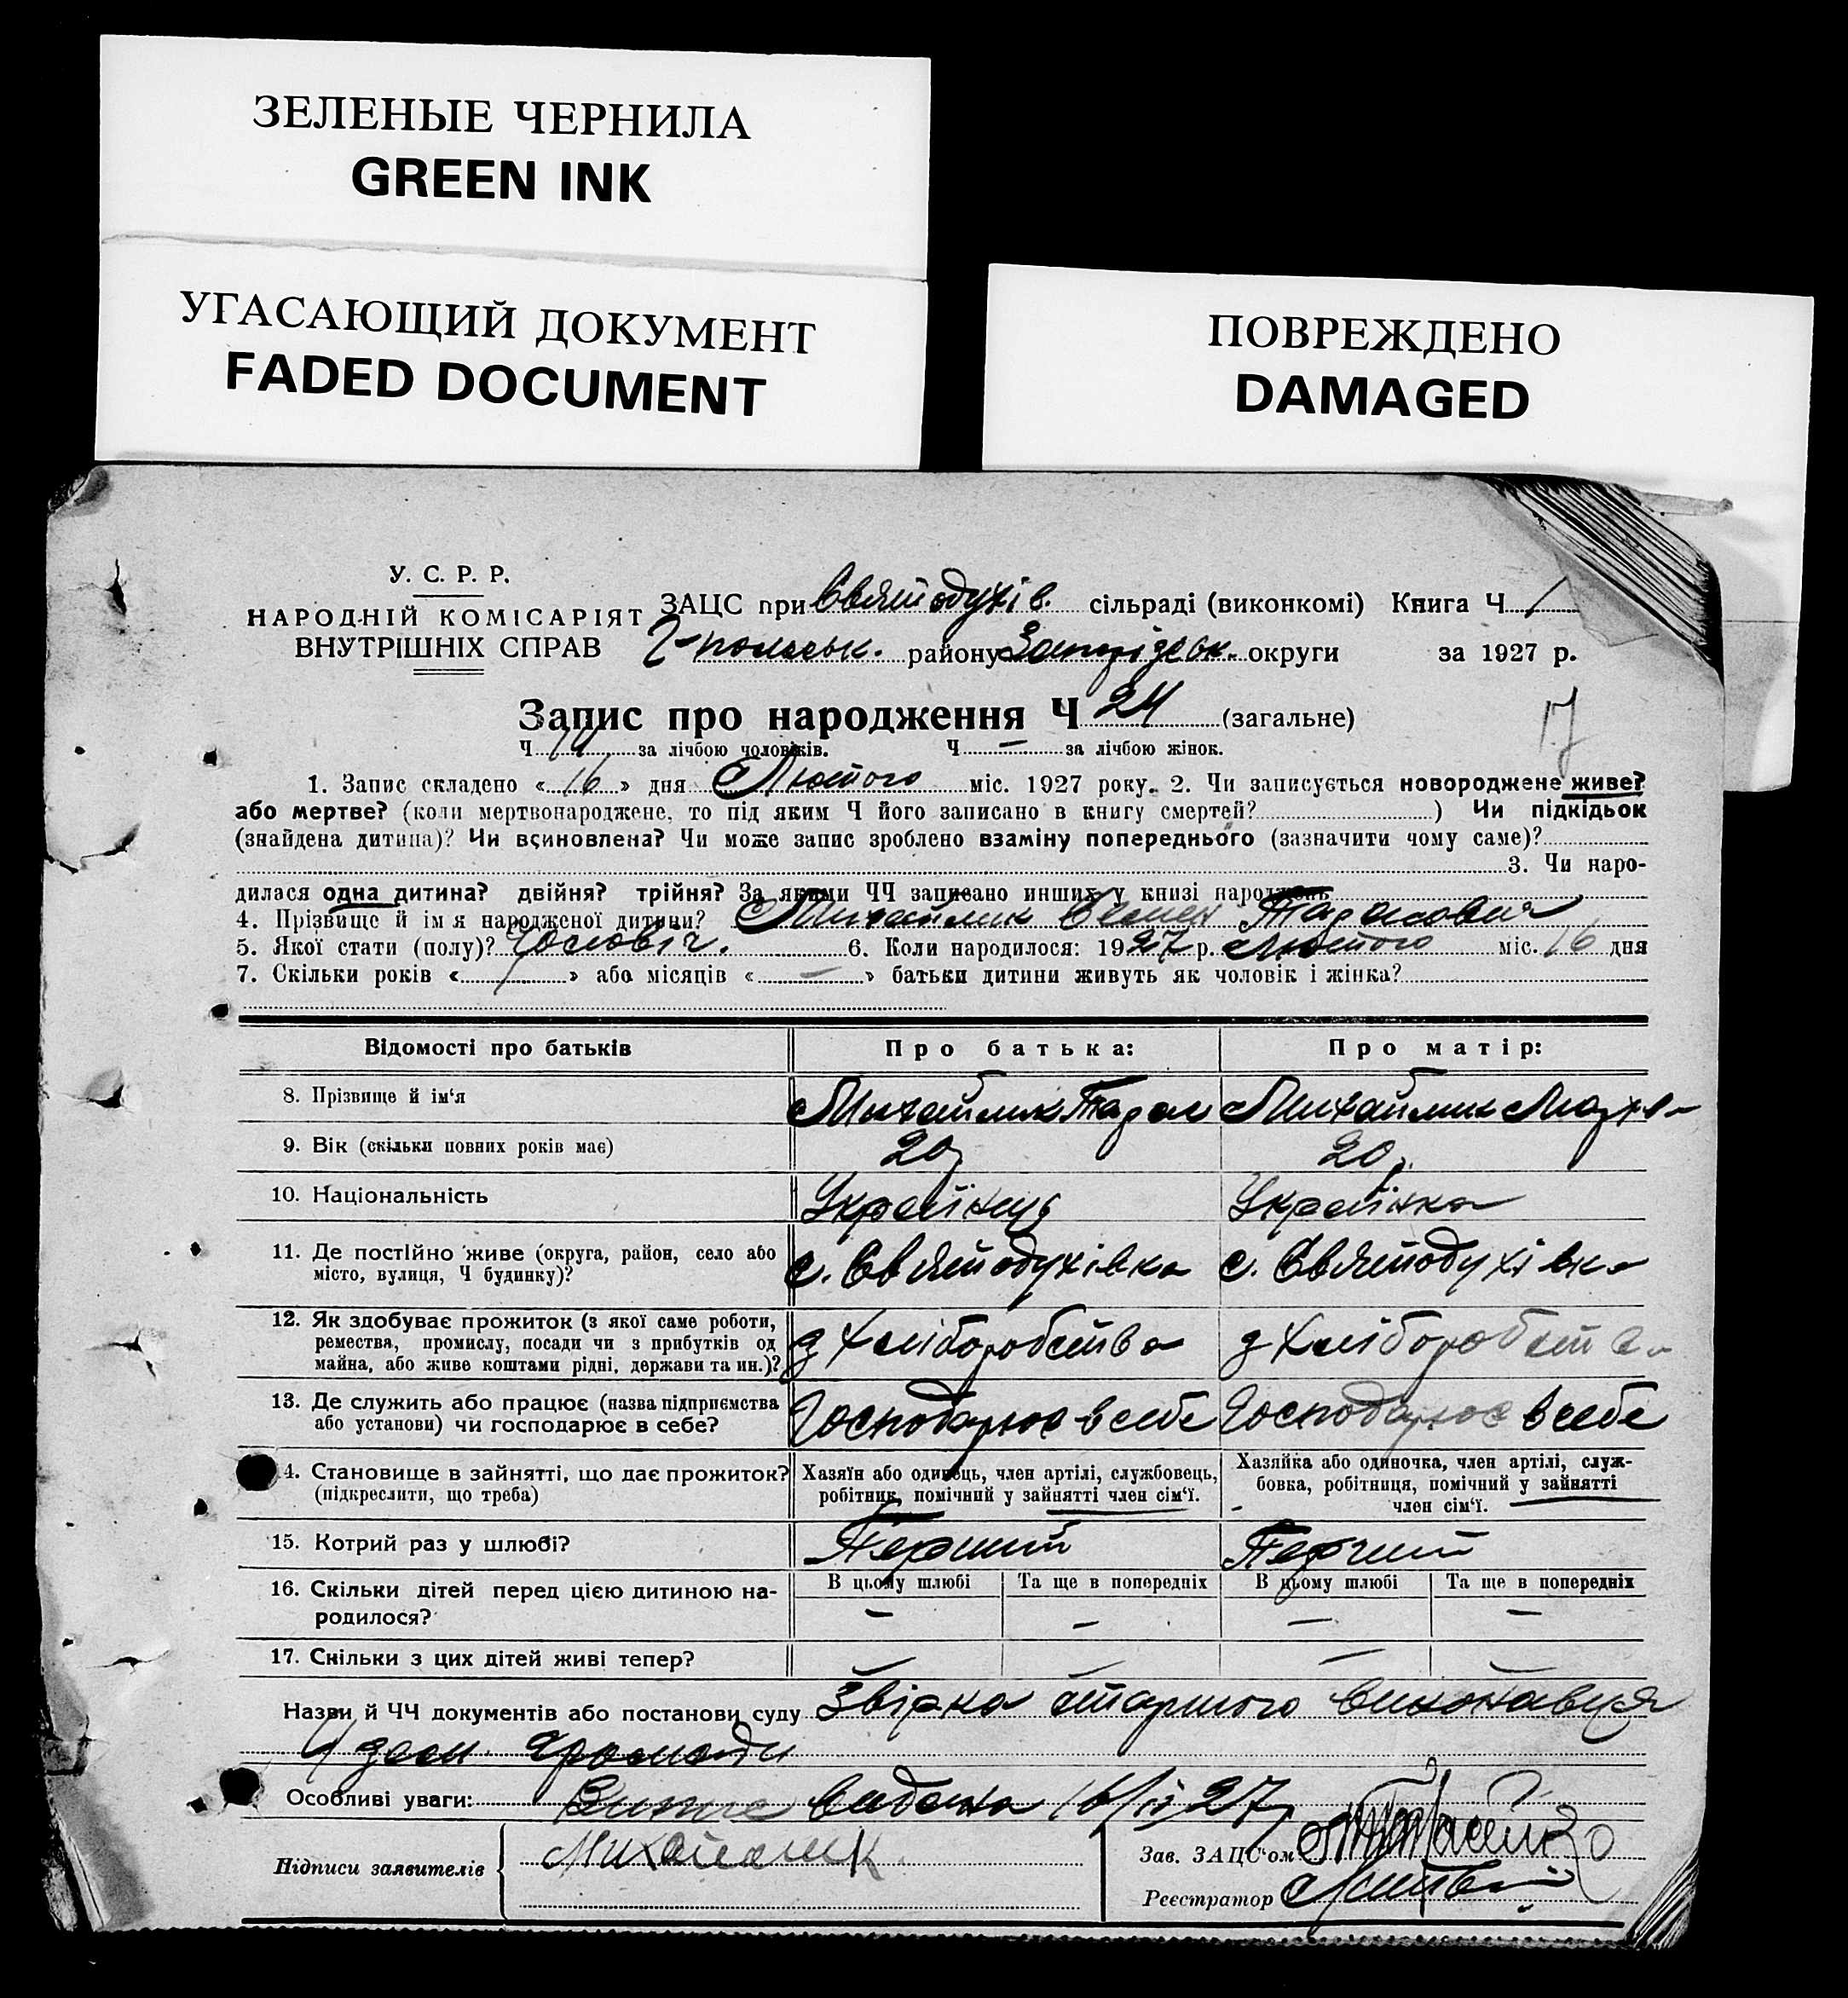 ЗЕЛЕНЫЕ ЧЕРНИЛА
GREEN INK
УГАСАЮЩИЙ ДОКУМЕНТ
FADED DOCUMENT
ПОВРЕЖДЕНО
DAMAGED
У. С. Р. Р.
НАРОДНІЙ КОМІСАРІЯТ
ВНУТРІШНІХ СПРАВ
ЗАЦС при Святодухів. сільраді (виконкомі) Книга Ч 1
Г-польськ. району Запорізськ. округи за 1927 р.
Запис про народження Ч 24 (загальне)
17
Ч 14 за лічбою чоловіків. Ч — за лічбою жінок.
1. Запис складено « 16 » дня Лютого міс. 1927 року. 2. Чи записується новороджене живе?
або мертве? (коли мертвонароджене, то під яким Ч його записано в книгу смертей? ) Чи підкідьок
(знайдена дитина)? Чи всиновлена? Чи може запис зроблено взаміну попереднього (зазначити чому саме)?
3. Чи наро-
дилася одна дитина? двійня? трійня? За якими ЧЧ записано инших у книзі народжень
4. Прізвище й імя народженої дитини? Михайлик Семен Тарасович
5. Якої стати (полу)? Чоловіч. 6. Коли народилося: 1927 р. Лютого міс. 16 дня
7. Скільки років « » або місяців « — » батьки дитини живуть як чоловік і жінка?
Відомості про батьків Про батька: Про матір:
8. Прізвище й ім'я Михайлик Тарас Михайлик
9. Вік (скільки повних років має) 20 р 20 р.
10. Національність Українець Українка
11. Де постійно живе (округа, район, село або с. Святодухівка с. Святодухівка
місто, вулиця, Ч будинку)?
12. Як здобуває прожиток (з якої саме роботи, з хліборобства з хліборобства
ремества, промислу, посади чи з прибутків од
майна, або живе коштами рідні, держави та ин.)?
13. Де служить або працює (назва підприємства Господарює в себе Господарює в себе
або установи) чи господарює в себе?
14. Становище в зайнятті, що дає прожиток? Хазяїн або одинець, член артілі, службовець, Хазяйка або одиночка, член артілі, служ-
(підкреслити, що треба) робітник, помічний у зайнятті член сім'ї. бовка, робітниця, помічний у зайнятті
член сім'ї.
15. Котрий раз у шлюбі? Перший Перший
16. Скільки дітей перед цією дитиною на- В цьому шлюбі Та ще в попередніх В цьому шлюбі Та ще в попередніх
родилося? — — — —
17. Скільки з цих дітей живі тепер? — — — —
Назви й ЧЧ документів або постанови суду Звірка старшого виконавця
громади
Особливі уваги: Випис видана 16/II 27
Підписи заявителів Михайлик
Зав. ЗАЦС'ом
Реєстратор